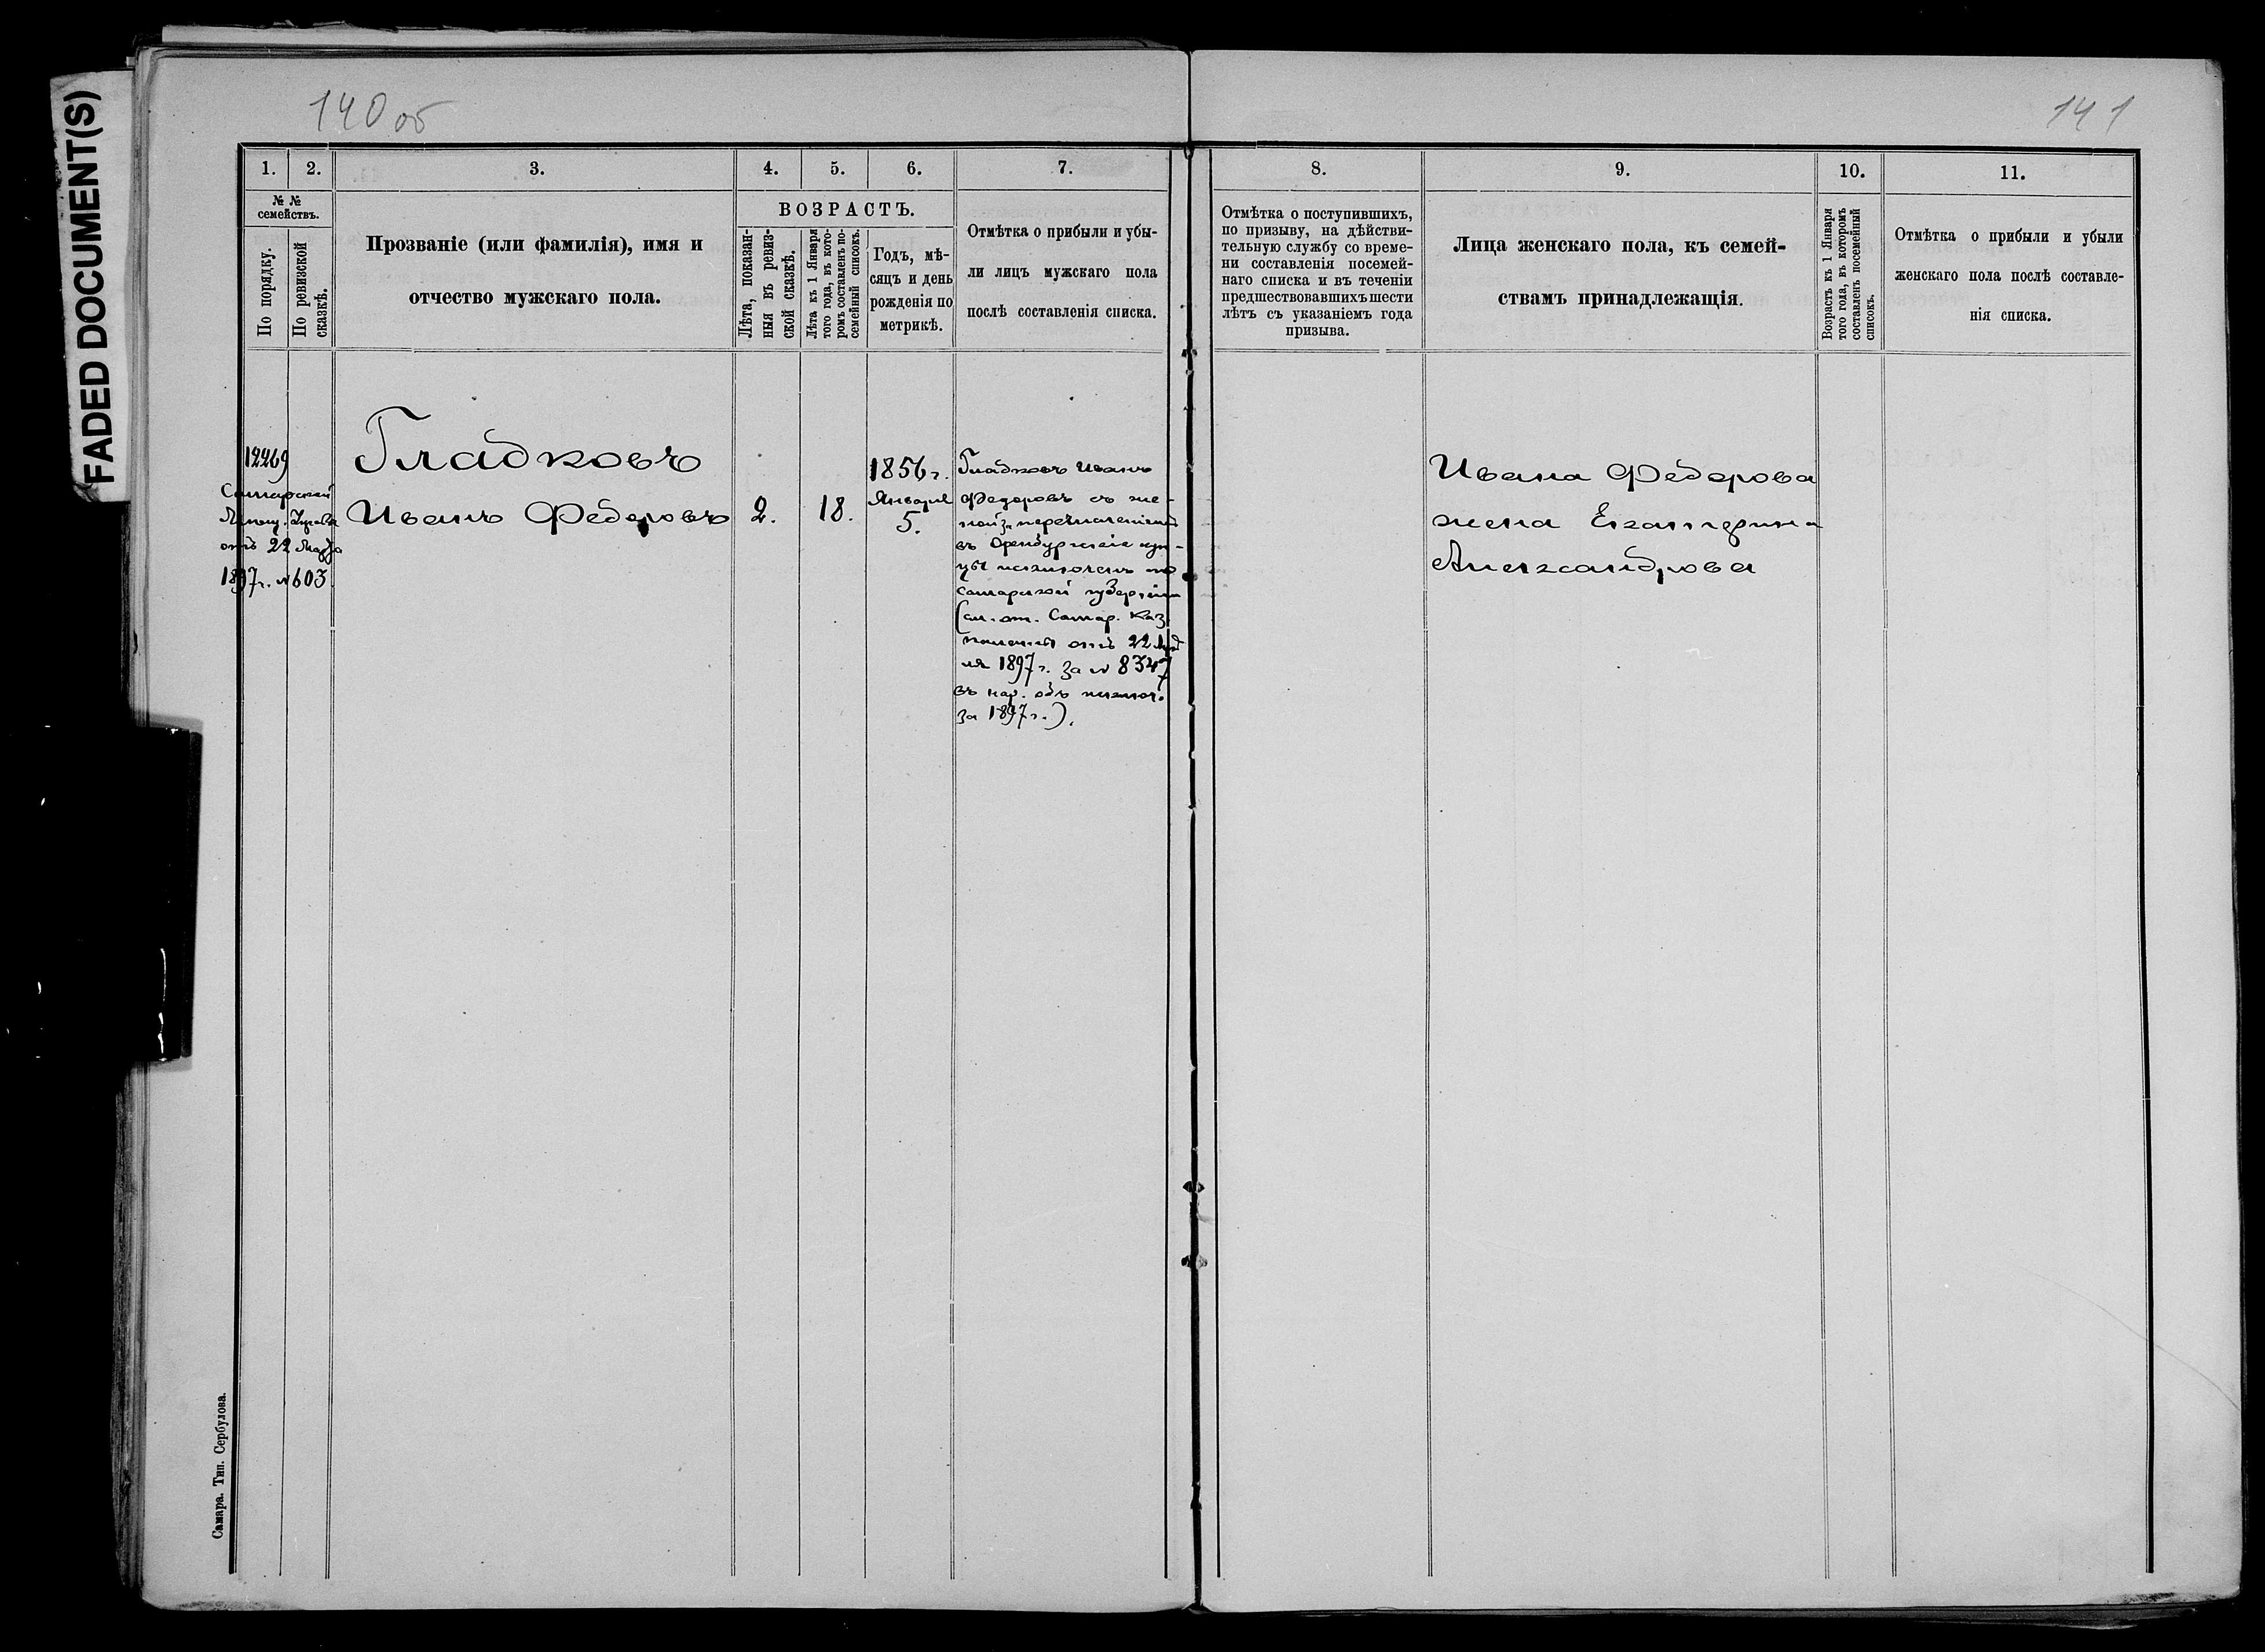 FADED DOCUMENT(S)
140 об
141
1.
2.
3.
4.
5.
6.
7.
8.
9.
10.
11.
№ №
семействъ.
По порядку.
По ревизской
сказкѣ.
Прозваніе (или фамилія), имя и
отчество мужскаго пола.
ВОЗРАСТЪ.
Лѣта, показан-
ныя въ ревиз-
ской сказкѣ.
Лѣта къ 1 Января
того года, въ кото-
ромъ составленъ по-
семейный списокъ.
Годъ, мѣ-
сяцъ и день
рожденія по
метрикѣ.
Отмѣтка о прибыли и убы-
ли лицъ мужскаго пола
послѣ составленія списка.
Отмѣтка о поступившихъ,
по призыву, на дѣйстви-
тельную службу со време-
ни составленія посемей-
наго списка и въ теченіи
предшествовавшихъ шести
лѣтъ съ указаніемъ года
призыва.
Лица женскаго пола, къ семей-
ствамъ принадлежащія.
Возрастъ къ 1 Января
того года, въ которомъ
составленъ посемейный
списокъ.
Отмѣтка о прибыли и убыли
женскаго пола послѣ составле-
нія списка.
12269
Самарской
Управы
отъ 22 Марта
1897 г. № 603.
Гладковъ
Иванъ Федоровъ
2.
18.
1856 г.
Января
5.
Гладковъ Иванъ
Федоровъ съ же-
ной
въ Оренбургские куп-
цы исключенъ по
Самарской губерніи
(см. от. Самар. Каз.
Палаты отъ 22
ля 1897 г. за № 8347
въ нар. объ исключ.
за 1897 г.).
Ивана Федорова
жена Екатерина
Александрова
Самара. Тип. Сербулова.